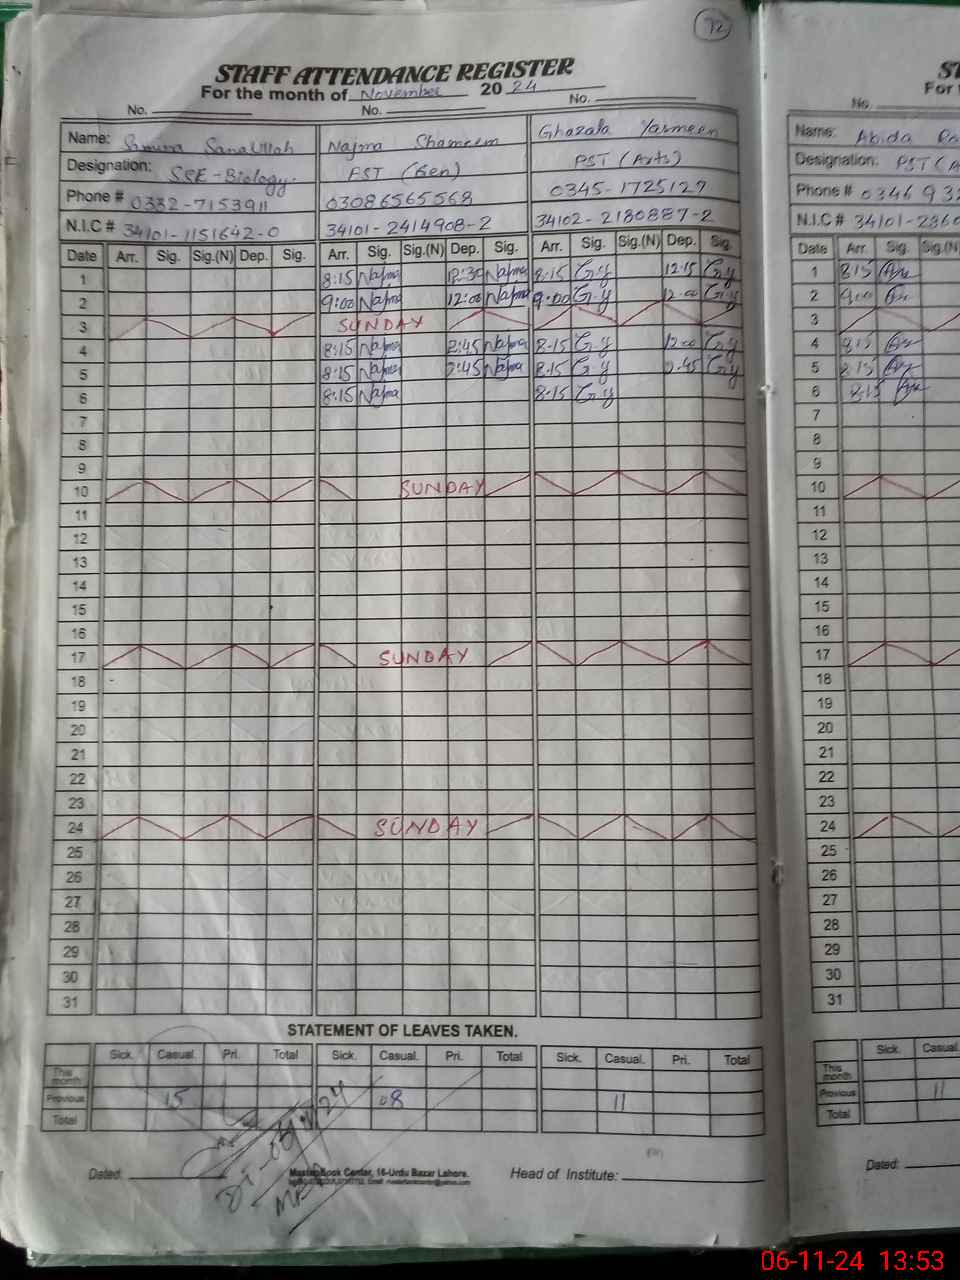 72
STAFF ATTENDANCE REGISTER
For the month of November 2024
No. No. No.
Name: Samina SanaUllah Najma Shameem Ghazala Yasmeen
Designation: SSE-Biology. PST (Gen) PST (Arts)
Phone # 0332-7153911 03086565568 0345-1725127
N.I.C # 34101-1151642-0 34101-2414908-2 34102-2180887-2
Date Arr. Sig. Sig.(N) Dep. Sig. Arr. Sig. Sig.(N) Dep. Sig. Arr. Sig. Sig.(N) Dep. Sig.
1 8:15 Najma 12:30 Najma 8-15 G.y 12-15 G.y
2 9:00 Najma 12:00 Najma 9-00 G.y 12-00 G.y
3 SUNDAY
4 8:15 Najma 2:45 Najma 8-15 G.y 12-00 G.y
5 8:15 Najma 2:45 Najma 8-15 G.y 2.45 G.y
6 8:15 Najma 8-15 G.y
7
8
9
10 SUNDAY
11
12
13
14
15
16
17 SUNDAY
18
19
20
21
22
23
24 SUNDAY
25
26
27
28
29
30
31
STATEMENT OF LEAVES TAKEN.
Sick. Casual. Pri. Total Sick. Casual. Pri. Total Sick. Casual. Pri. Total
This month
Previous 15 08 11
Total
Dated: Master Book Center, 16-Urdu Bazar Lahore. Head of Institute:
For
No.
Name: Abida
Designation: PST
Phone # 0346 93
N.I.C # 34101-
Date Arr. Sig. Sig.(N)
1 8:15
2 9:00
3
4 8:15
5 8:15
6 8:15
7
8
9
10
11
12
13
14
15
16
17
18
19
20
21
22
23
24
25
26
27
28
29
30
31
Sick. Casual.
This month
Previous 11
Total
Dated:
06-11-24 13:53